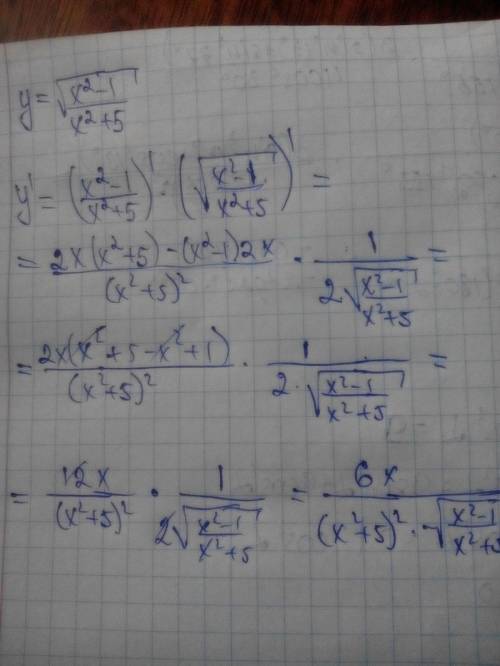 y = √((x²-1)/(x²+5))
y' = ((x²-1)/(x²+5))' · (√((x²-1)/(x²+5)))' =
= (2x(x²+5) - (x²-1)2x)/(x²+5)² · 1/(2√((x²-1)/(x²+5))) =
= (2x(x²+5-x²+1))/(x²+5)² · 1/(2·√((x²-1)/(x²+5))) =
= 12x/(x²+5)² · 1/(2√((x²-1)/(x²+5))) = 6x/((x²+5)² · √((x²-1)/(x²+5)))